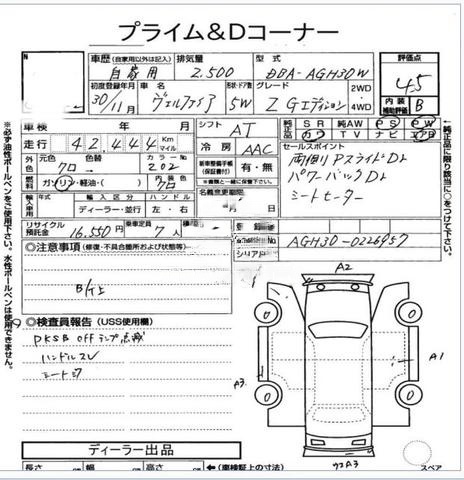 プライム&Dコーナー
車歴(自家用以外は記入) 排気量 型式 評価点
自家用 2,500 DBA-AGH30W 4.5
初度登録年月 車名 形状・ドア数 グレード 2WD 4WD 内装補助評価 B
30/11月 ヴェルファイア 5W Z Gエディション
車検 年 月 シフト AT 純正品 SR 純AW PS PW
走行 42,444 Km マイル 冷房 AAC カワ TV ナビ エアB
外 元色 色替 カラーNo. 新車整備手帳(保証書付) 有・無 セールスポイント
色 クロ 202 両側PスライドDr
ガソリン・軽油・( ) 内装色 クロ 名義変更 パワーバックDr
輸入車 年式 輸入区分 ハンドル シートヒーター
ディーラー・並行 左・右
リサイクル預託金 16,550円 乗車定員 7人
AGH30-0226957
シリアル
◎注意事項(修復・不具合箇所および状態等)
B/付
◎検査員報告(USS使用欄)
PKSB OFFランプ点滅
ハンドルスレ
A2
A1
A3
A3
ディーラー出品
長さ cm 幅 cm 高さ cm (車検証上の寸法)
スペア
※必ず油性ボールペンをご使用下さい。水性ボールペンは使用できません。
↑純正品に限り該当に○をつけて下さい。